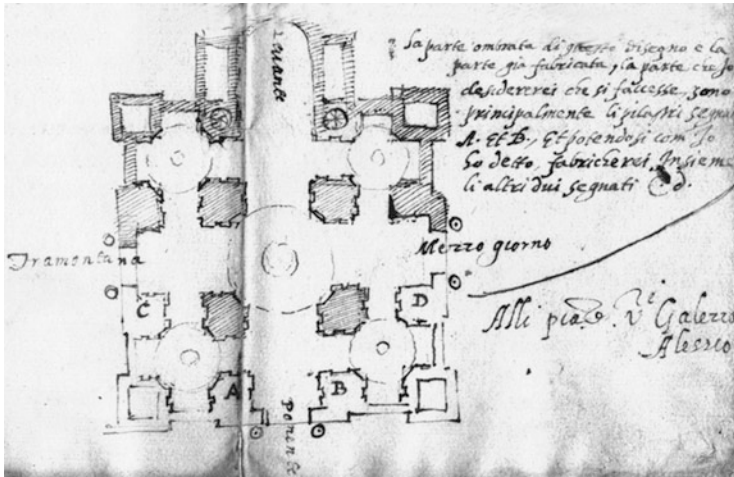 la parte ombrata di questo disegno e la
parte gia fabricata, la parte che Jo
desidererei che si facesse, sono
principalmente li pilastri segna
A. et B., Et potendosi com Jo
ho detto, fabricherei, Insieme
li altri dui segnati C d.
Levante
Tramontana
Mezzo giorno
C
D
Alli
Galezzo
Alessio
A
B
Ponente